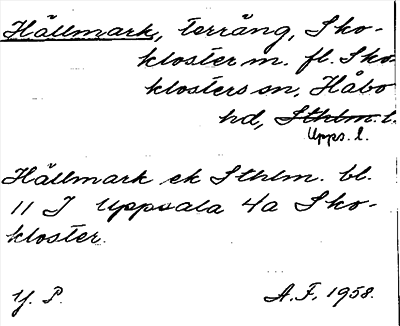 Hällmark, terräng, Sko-
kloster m. fl. Sko-
klosters sn, Håbo
hd, Sthlm. l.
Upps. l.
Hällmark ek Sthlm. bl.
11 J Uppsala 4a Sko-
kloster.
Y. P. A. F. 1958.